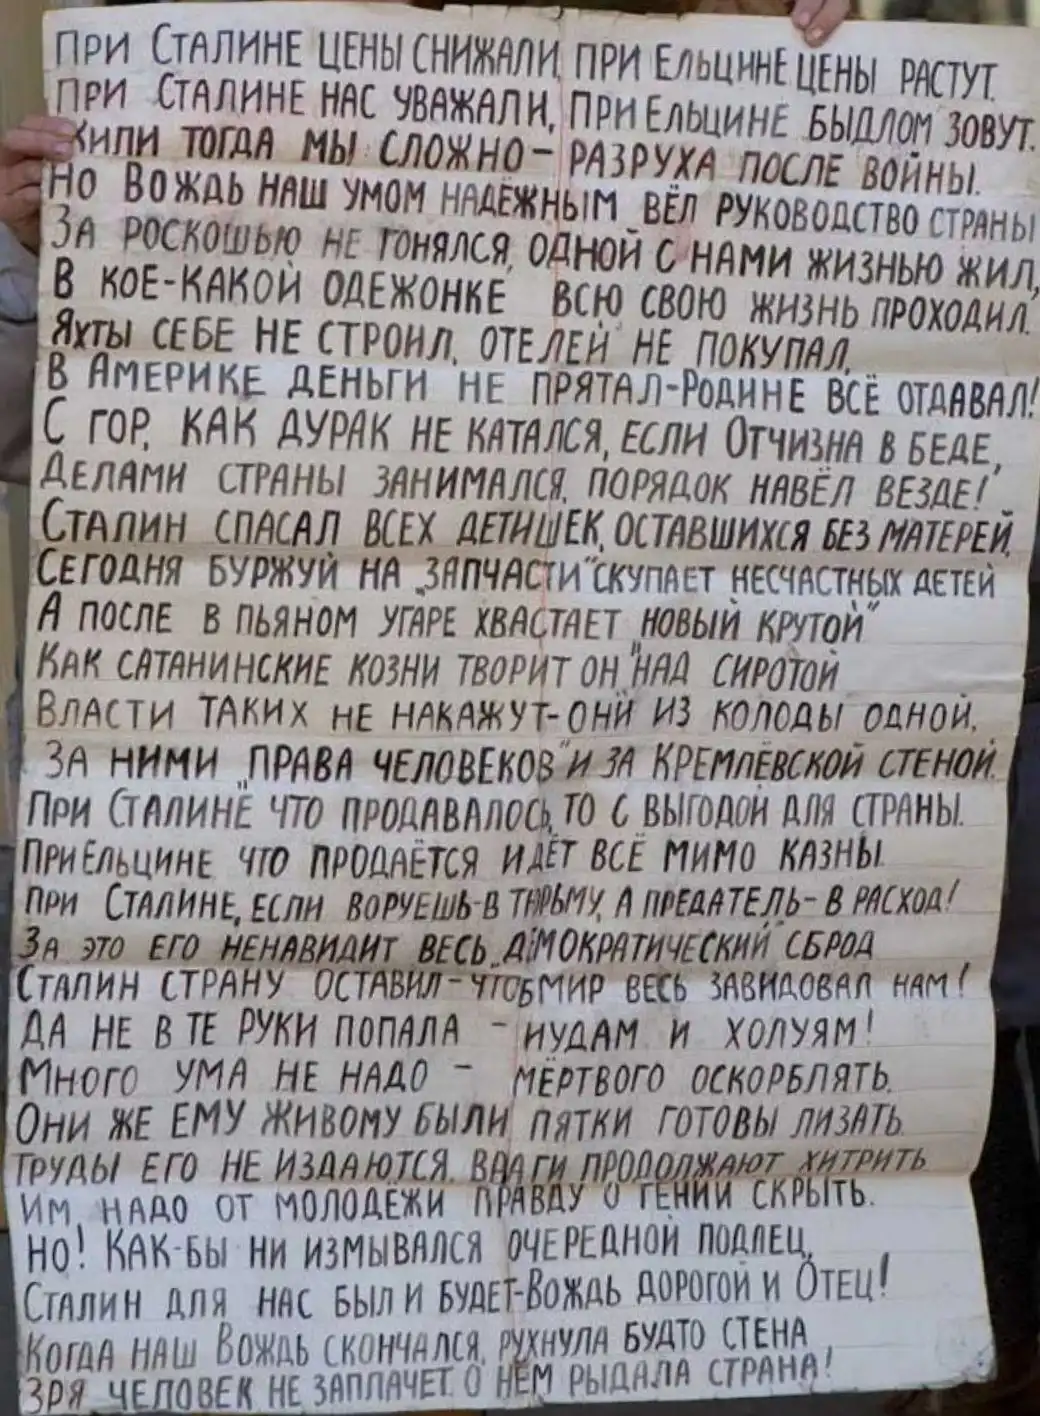 При Сталине цены снижали, при Ельцине цены растут.
При Сталине нас уважали, при Ельцине быдлом зовут.
Жили тогда мы сложно – разруха после войны.
Но Вождь наш умом надёжным вёл руководство страны
За роскошью не гонялся, одной с нами жизнью жил,
В кое-какой одежонке всю свою жизнь проходил.
Яхты себе не строил, отелей не покупал,
В Америке деньги не прятал-Родине всё отдавал!
С гор, как дурак не катался, если Отчизна в беде,
Делами страны занимался, порядок навёл везде!
Сталин спасал всех детишек, оставшихся без матерей,
Сегодня буржуй на „запчасти" скупает несчастных детей
А после в пьяном угаре хвастает „новый крутой"
Как сатанинские козни творит он над сиротой
Власти таких не накажут-они из колоды одной.
За ними „права человеков" и за Кремлёвской стеной.
При Сталинё что продавалось, то с выгодой для страны.
При Ельцине что продаётся идёт всё мимо казны
При Сталине, если воруешь-в тюрьму, а предатель – в расход!
За это его ненавидит весь „димократический" сброд
Сталин страну оставил – чтоб мир весь завидовал нам!
Да не в те руки попала – иудам и холуям!
Много ума не надо – мёртвого оскорблять.
Они же ему живому были пятки готовы лизать
Труды его не издаются. Враги продолжают хитрить
Им надо от молодежи правду о гении скрыть.
Но! Как-бы ни измывался очередной подлец,
Сталин для нас был и будет-Вождь дорогой и Отец!
Когда наш Вождь скончался, рухнула будто стена
Зря человек не заплачет. О нём рыдала страна!